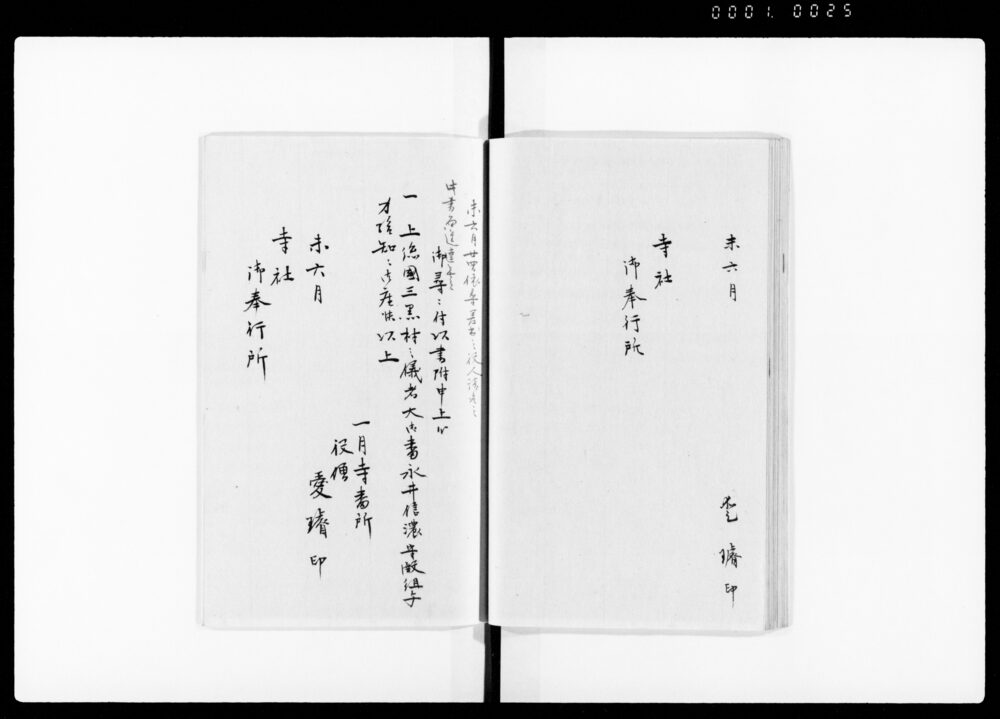 0001. 0025
未六月
愛璿 印
寺社
御奉行所
未六月廿四
御尋ニ付以書附申上候
一 上総國三黒村之儀者大御番永井信濃守殿組
知
御座候以上
未六月
寺社
御奉行所
一月寺番所
役僧
愛璿 印